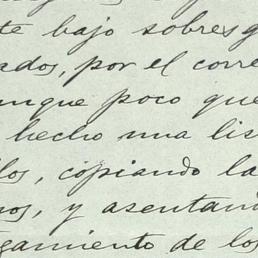 te bajo sobres g
ados, por el corre
unque poco que
hecho una lis
los, copiando la
nos, y asentand
gamiento de los